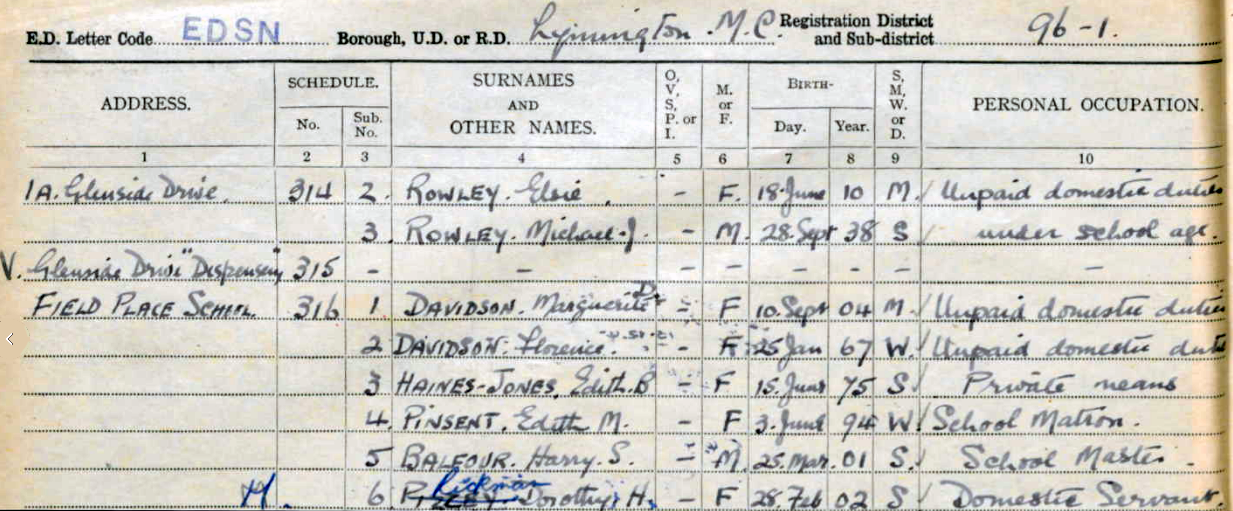 E.D. Letter Code EDSN Borough, U.D. or R.D. Lymington M.C. Registration District and Sub-district 96-1.
ADDRESS. SCHEDULE. No. Sub. No. SURNAMES AND OTHER NAMES. O, V, S, P. or I. M. or F. BIRTH- Day. Year. S, M, W. or D. PERSONAL OCCUPATION.
1 2 3 4 5 6 7 8 9 10
1A. Glenside Drive. 314 2. ROWLEY. Elsie. - F. 18 June 10 M. Unpaid domestic duties
3. ROWLEY. Michael. J. - M. 28. Sept 38 S under school age.
V. Glenside Drive "Dispensery" 315 - - - - - - -
FIELD PLACE SCHOOL. 316 1 DAVIDSON. Marguerite - F 10. Sept 04 M. Unpaid domestic duties
2 DAVIDSON. Florence. - F 25 Jan 67 W. Unpaid domestic duti
3 HAINES-JONES, Edith. B - F 15. June 75 S Private means
4. PINSENT. Edith M. - F 3. June 94 W. School Matron.
5 BALFOUR. Harry. S. - M. 25. Mar. 01 S. School Master.
Rickman
M. 6 Dorothy H. - F 28. Feb 02 S Domestic Servant.